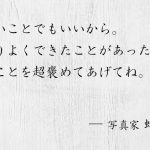 いことでもいいから。
りよくできたことがあった
ことを超褒めてあげてね。
― 写真家